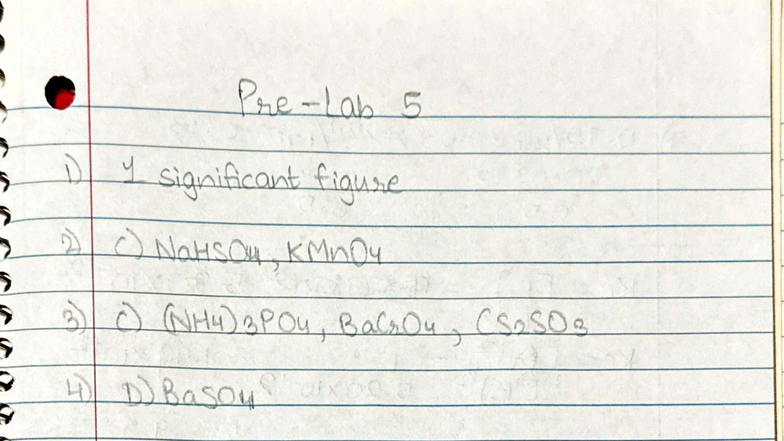 Pre-Lab 5
1) 1 significant figure
2) C) NaHSO4, KMnO4
3) C) (NH4)3PO4, BaCrO4, CS2SO3
4) D) BaSO4?